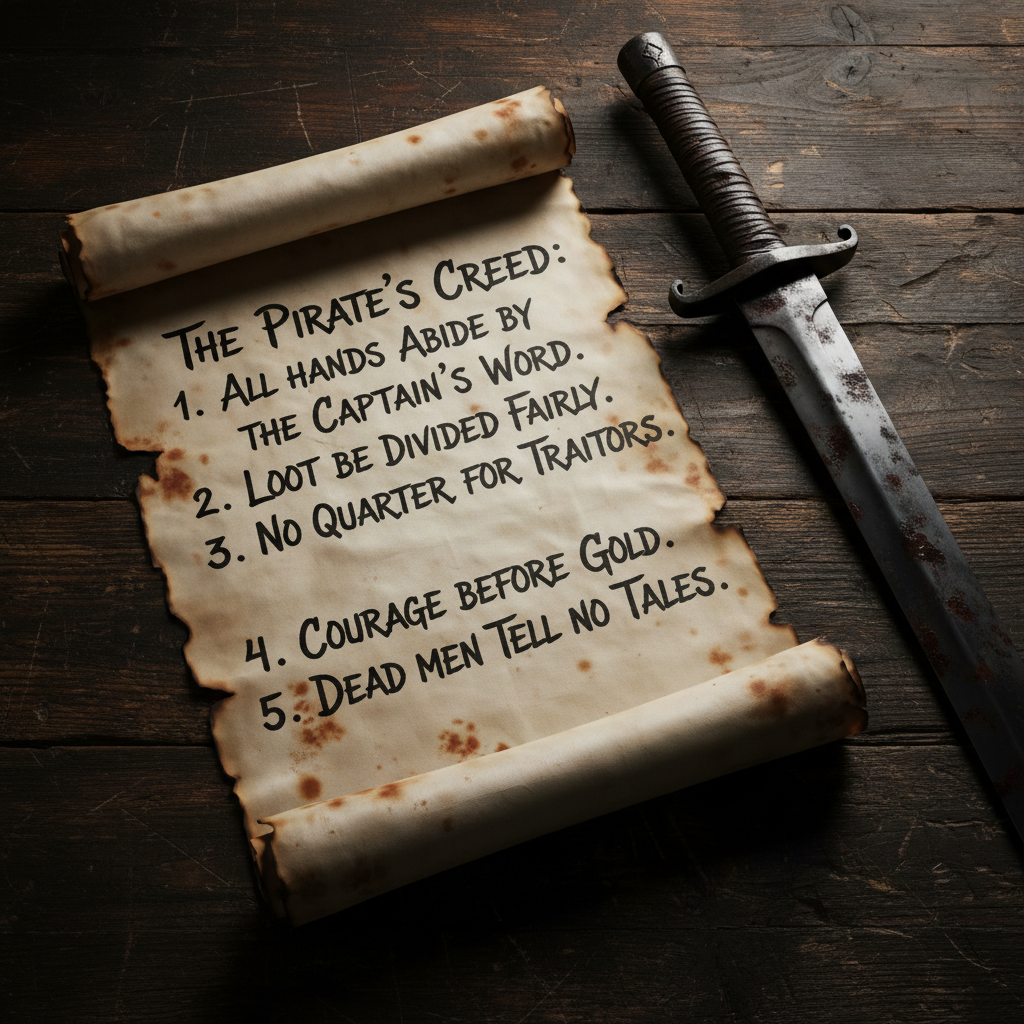 The Pirate's Creed:
1. All hands Abide by
the Captain's Word.
2. Loot be Divided Fairly.
3. No Quarter for Traitors.
4. Courage before Gold.
5. Dead men Tell no Tales.